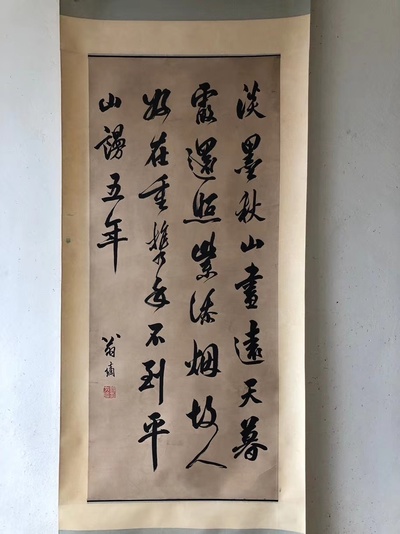 淡墨秋山畫遠天暮
霞還照紫添烟故人
好在重攜手不到平
山謾五年
翁